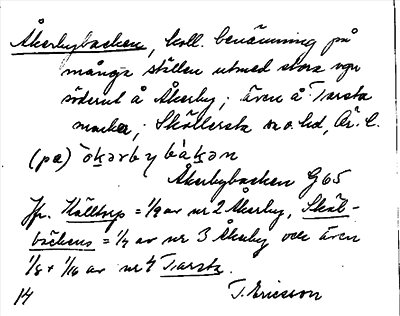 Åkerbybacken, koll. benämning på
många ställen utmed stora vägen
söderut å Åkerby; även å Tarsta
marker, Sköllersta sn o. hd, Ör. l.
(pa) ò̀kərby bàkən
Åkerbybacken G65
Jfr. Källtorp = 1/9 av nr 2 Åkerby,
bäckens = 1/4 av nr 3 Åkerby och även
1/8 + 1/16 av nr 4 Tarsta.
14 T. Ericsson